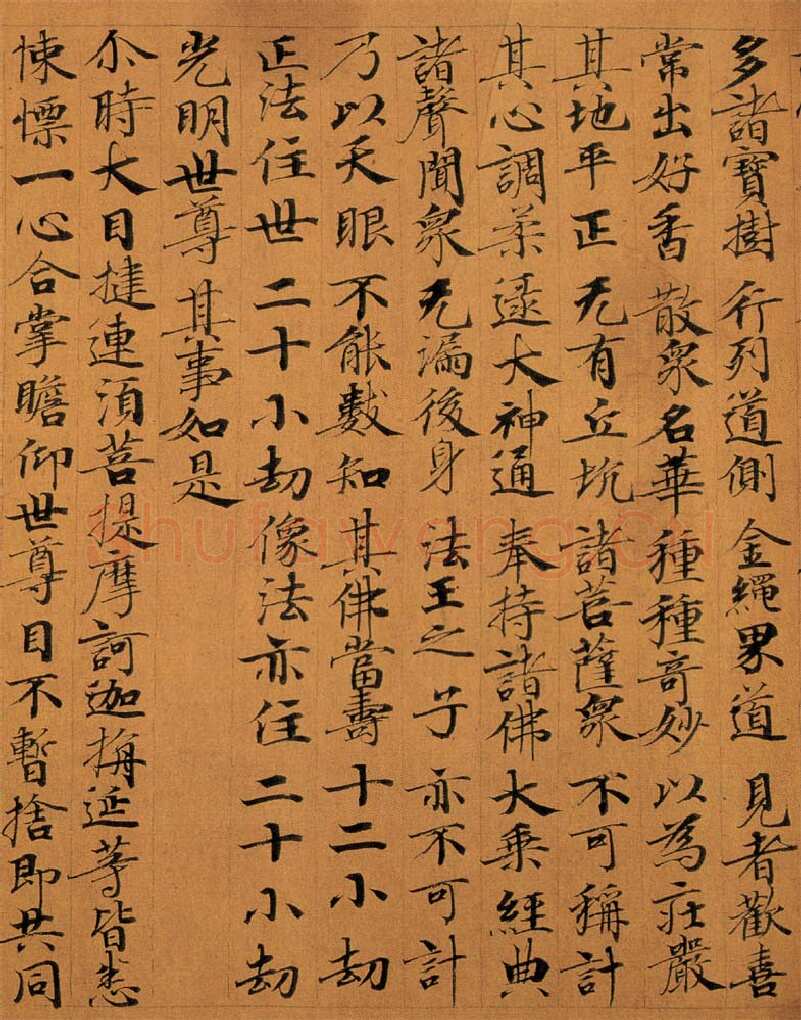 多諸寶樹 行列道側 金繩界道 見者歡喜
常出好香 散衆名華 種種奇妙 以為莊嚴
其地平正 无有丘坑 諸菩薩衆 不可稱計
其心調柔 逮大神通 奉持諸佛 大乘經典
諸聲聞衆 无漏後身 法王之子 亦不可計
乃以天眼 不能數知 其佛當壽 十二小劫
正法住世 二十小劫 像法亦住 二十小劫
光明世尊 其事如是
尒時大目揵連須菩提摩訶迦旃延等皆悉
悚慄一心合掌瞻仰世尊目不暫捨即共同